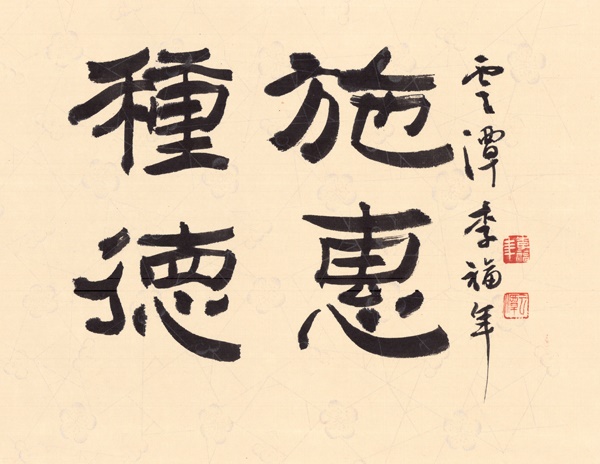 雲潭 李福年
施惠
種德